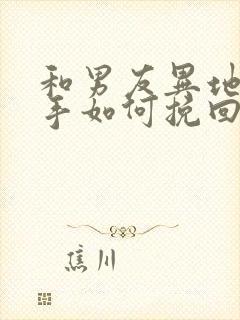 和男友异地
手如何挽回
焦川